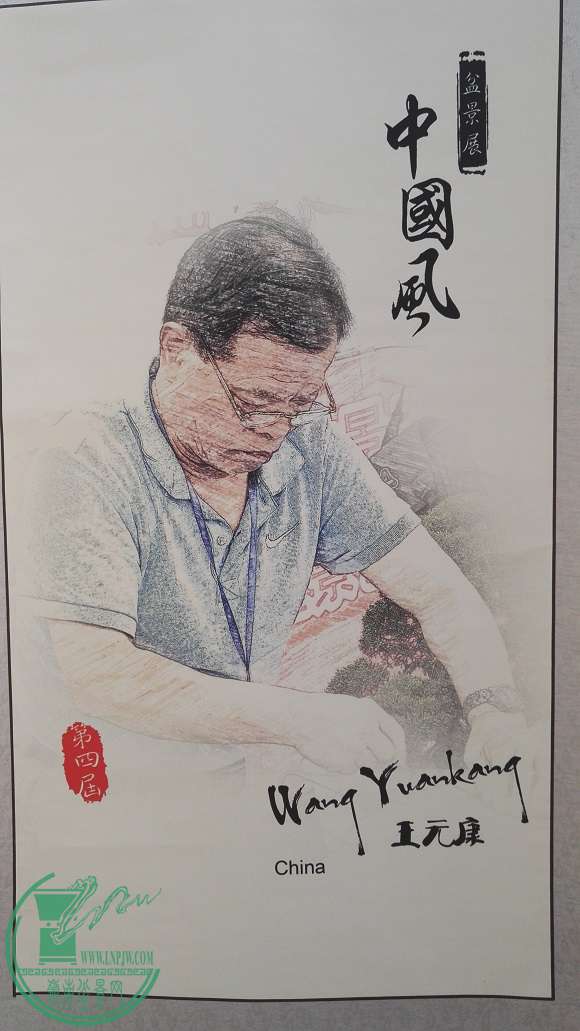 盆景展
中國風
第四届
Wang Yuankang
王元康
China
WWW.LNPJW.COM
岭南盆景网